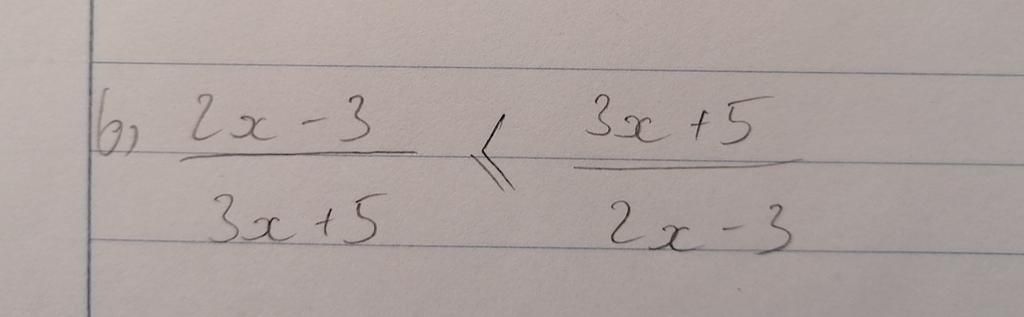 b) \frac{2x-3}{3x+5} \leqslant \frac{3x+5}{2x-3}